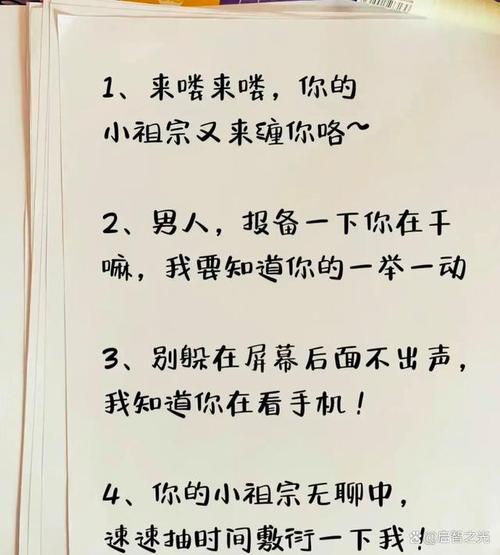 1、来喽来喽，你的
小祖宗又来缠你咯~
2、男人，报备一下你在干
嘛，我要知道你的一举一动
3、别躲在屏幕后面不出声，
我知道你在看手机！
4、你的小祖宗无聊中，
速速抽时间敷衍一下我！
@启智之光